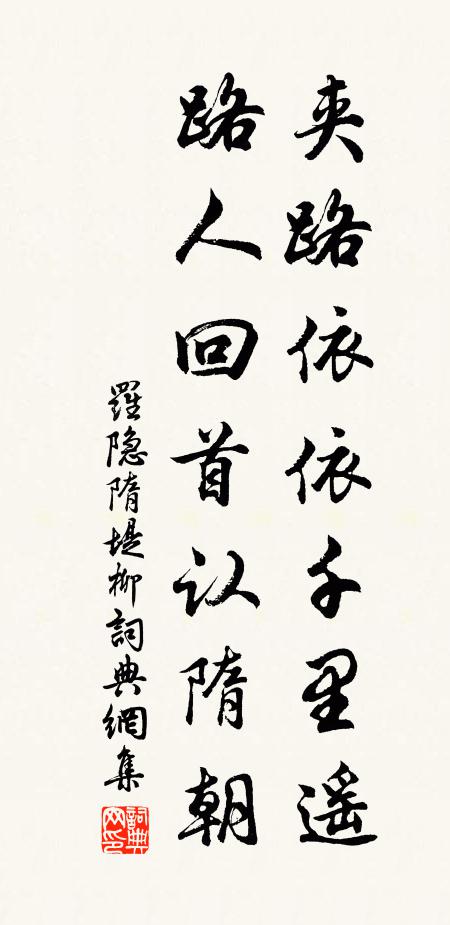 夹路依依千里遥
路人回首认隋朝
羅隐隋堤柳詞典網集
詞典网印